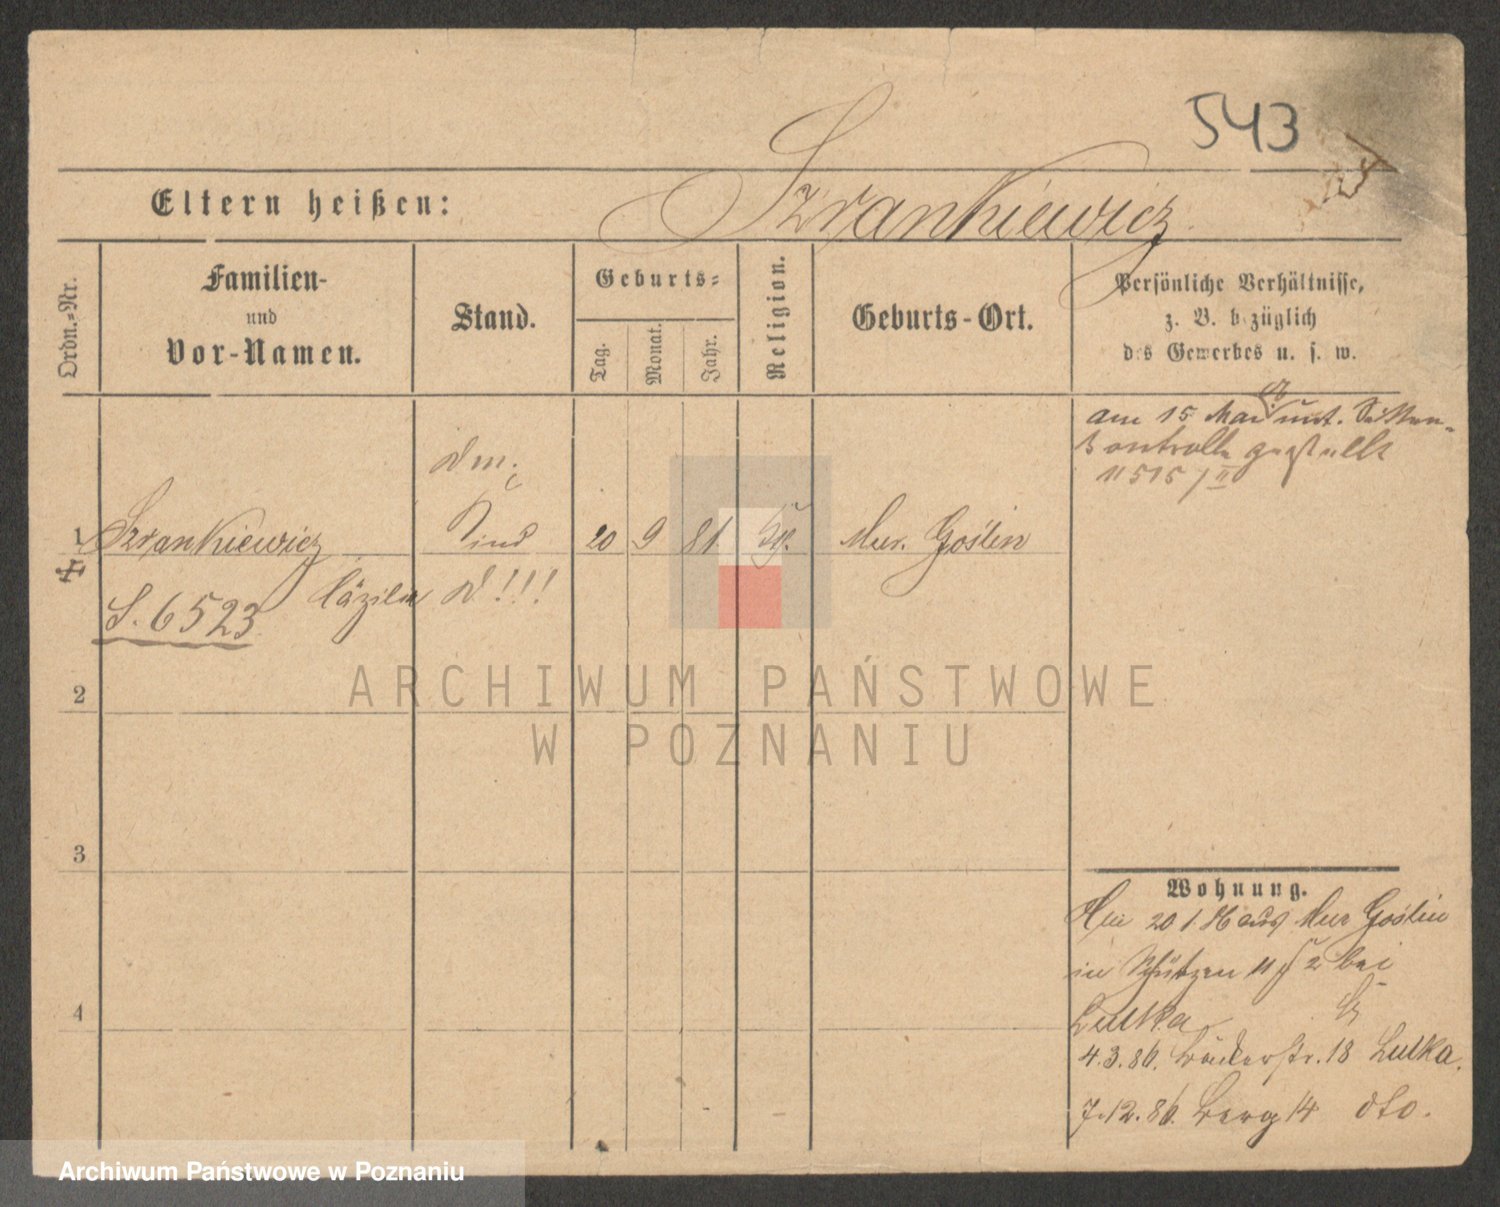 543
Eltern heißen: Szrankiewicz
Ordn.-Nr.
Familien-
und
Vor-Namen.
Stand.
Geburts-
Tag.
Monat.
Jahr.
Religion.
Geburts-Ort.
Persönliche Verhältnisse,
z. B. bezüglich
des Gewerbes u. s. w.
am 15 Mai unt. Sitten-
Kontrolle gestellt
11515/II
1 Szrankiewicz Kind 20 9 81 Mur. Goślin
Cäzilie
S. 6523
2
3
4
Wohnung.
20 1 86 aus Mur Goślin
in Schützen 11 2 bei
Lulka
4.3.86. Bäckerstr. 18 Lulka.
7.12.86. Berg 14 dto.
ARCHIWUM PAŃSTWOWE
W POZNANIU
Archiwum Państwowe w Poznaniu